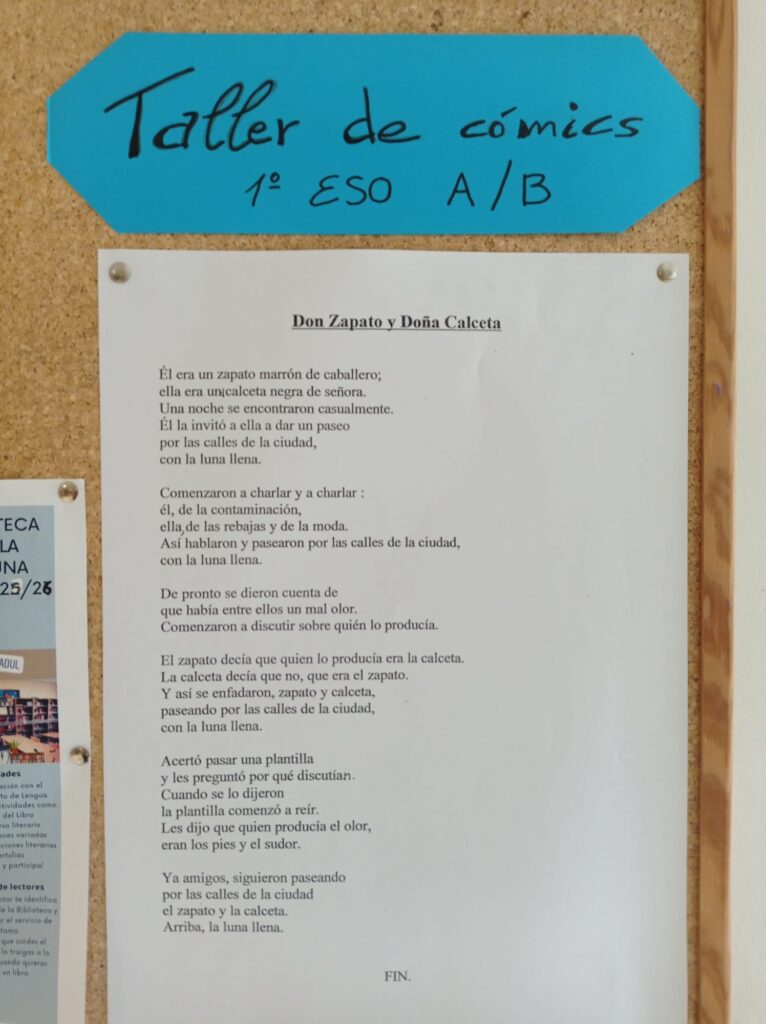 Taller de cómics
1º ESO A/B
Don Zapato y Doña Calceta
Él era un zapato marrón de caballero;
ella era una calceta negra de señora.
Una noche se encontraron casualmente.
Él la invitó a ella a dar un paseo
por las calles de la ciudad,
con la luna llena.
Comenzaron a charlar y a charlar :
él, de la contaminación,
ella, de las rebajas y de la moda.
Así hablaron y pasearon por las calles de la ciudad,
con la luna llena.
De pronto se dieron cuenta de
que había entre ellos un mal olor.
Comenzaron a discutir sobre quién lo producía.
El zapato decía que quien lo producía era la calceta.
La calceta decía que no, que era el zapato.
Y así se enfadaron, zapato y calceta,
paseando por las calles de la ciudad,
con la luna llena.
Acertó pasar una plantilla
y les preguntó por qué discutían.
Cuando se lo dijeron
la plantilla comenzó a reír.
Les dijo que quien producía el olor,
eran los pies y el sudor.
Ya amigos, siguieron paseando
por las calles de la ciudad
el zapato y la calceta.
Arriba, la luna llena.
FIN.
TECA
LA
UNA
25/26
ADUL
ades
ación con el
to de Lengua
tividades como:
del Libro
rso literario
nes variadas
ciones literarias
ertulias
y participa!
de lectores
ctor te identifica
de la Biblioteca y
ar el servicio de
tamo.
que cuides el
lo traigas a la
uando quieras
un libro.